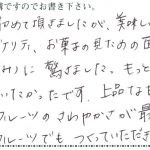 構ですのでお書き下さい。
初めて頂きましたが、美味し
クオリティ、お菓子の見ための面
み)に驚きました。もっと
いたかったです。上品なも
フルーツのさわやかさが最
フルーツでも つくっていただき